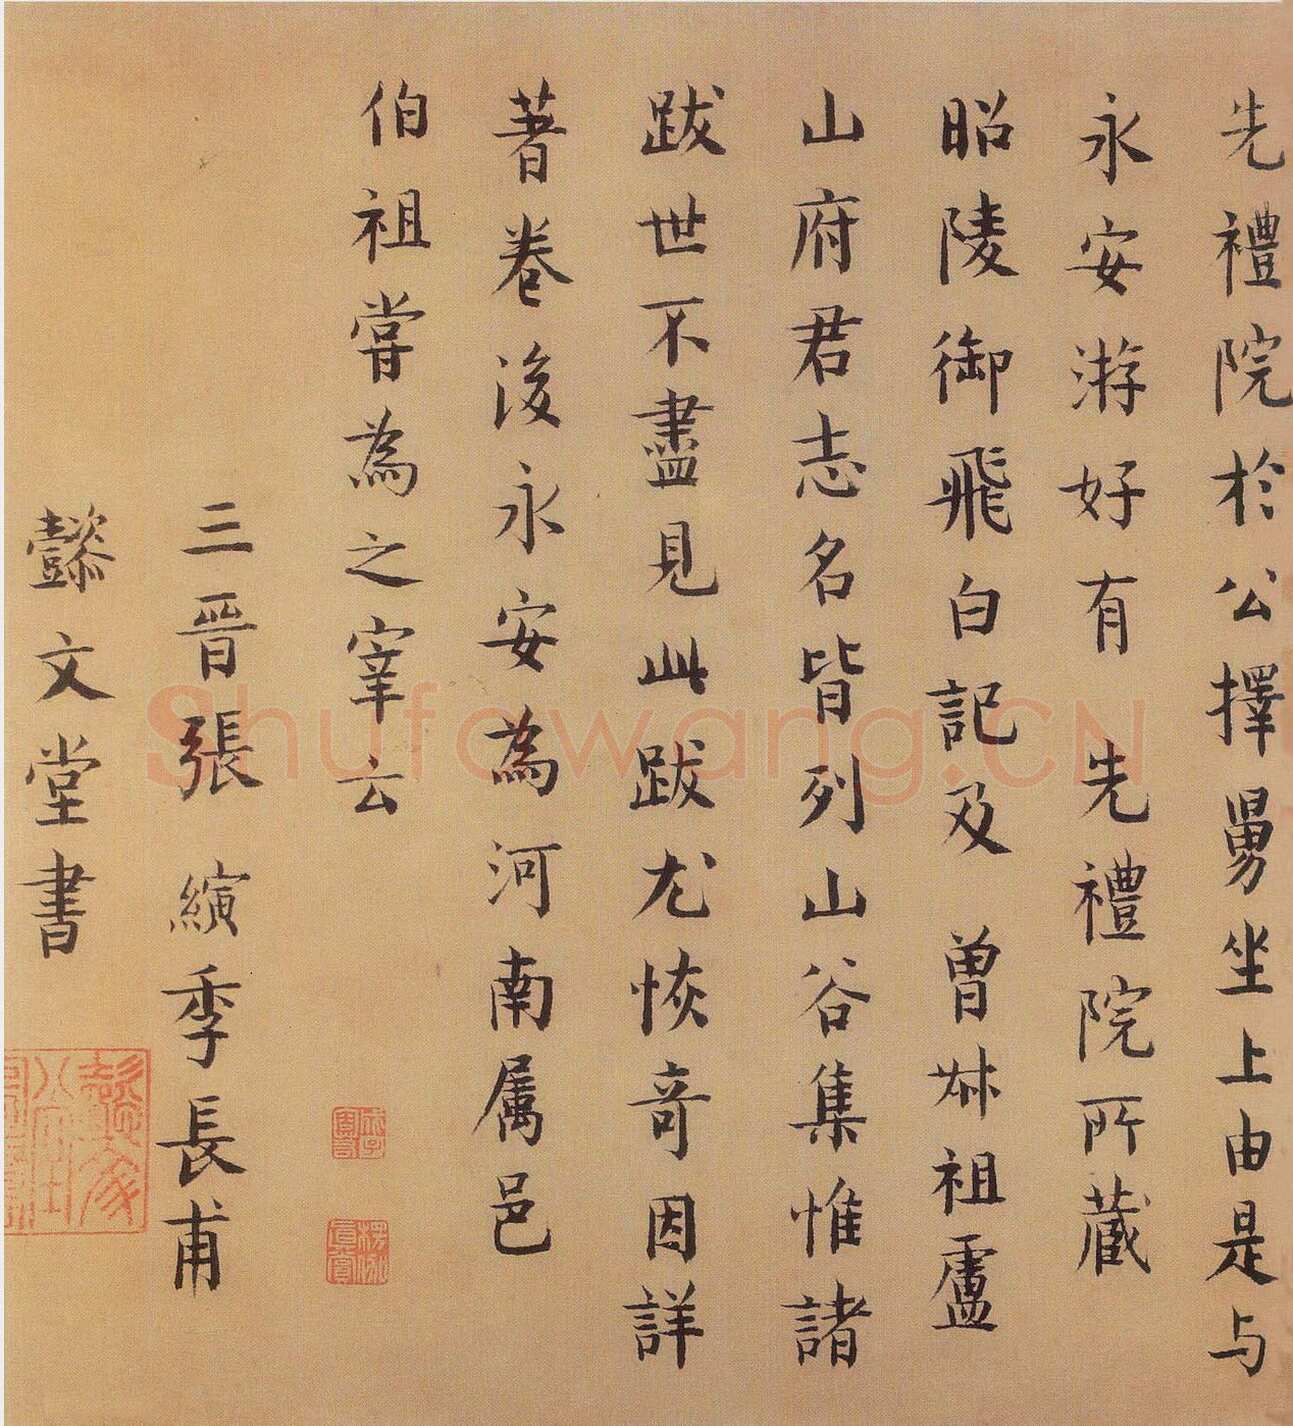 先禮院於公擇舅坐上由是与
永安游好有先禮院所藏
昭陵御飛白記及曾叔祖盧
山府君志名皆列山谷集惟諸
跋世不盡見此跋尤恢奇因詳
著卷後永安為河南属邑
伯祖嘗為之宰云
三晋張縯季長甫
懿文堂書
Shufawang.CN